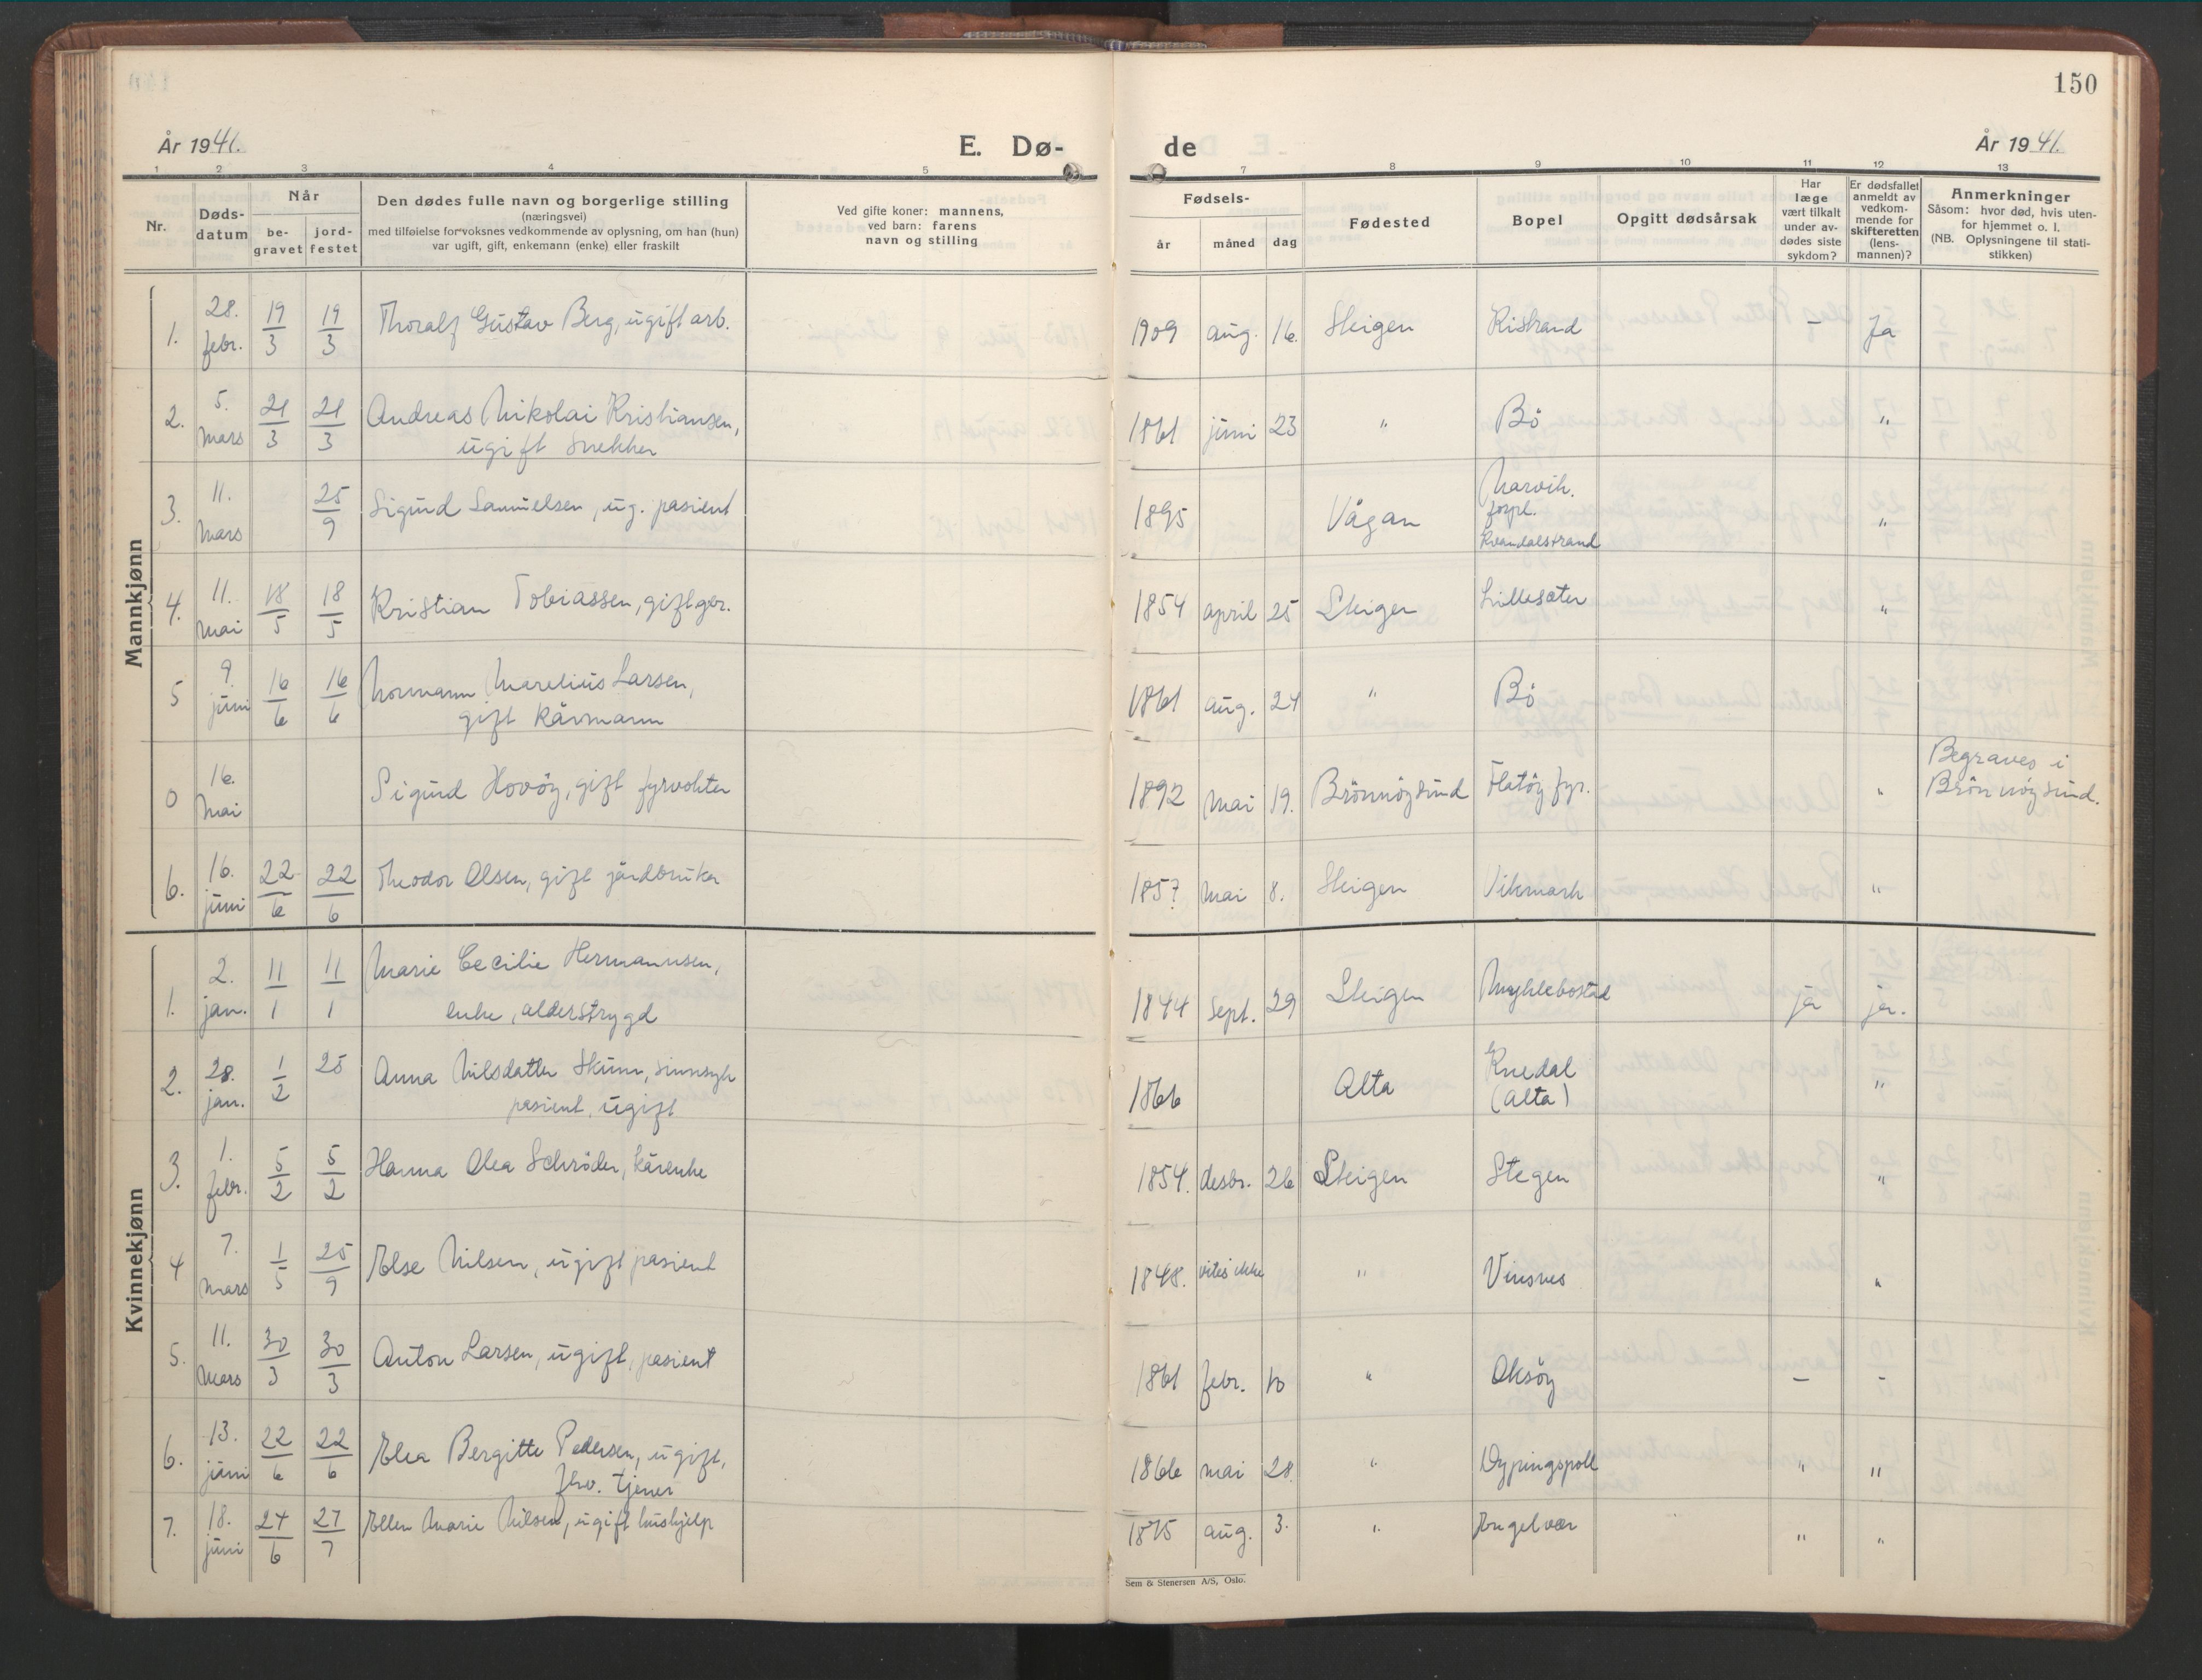 150
År 1941.
E. Dø-
de
År 1941.
1 2 3 4 5 7 8 9 10 11 12 13
Nr.
Døds-
datum
Når
be-
gravet
jord-
festet
Den dødes fulle navn og borgerlige stilling
(næringsvei)
med tilføielse for voksnes vedkommende av oplysning, om han (hun)
var ugift, gift, enkemann (enke) eller fraskilt
Ved gifte koner: mannens,
ved barn: farens
navn og stilling
Fødsels-
år
måned
dag
Fødested
Bopel
Opgitt dødsårsak
Har
læge
vært tilkalt
under av-
dødes siste
sykdom?
Er dødsfallet
anmeldt av
vedkom-
mende for
skifteretten
(lens-
mannen)?
Anmerkninger
Såsom: hvor død, hvis uten-
for hjemmet o. l.
(NB. Oplysningene til stati-
stikken)
Mannkjønn
1. 28. febr. 19/3 19/3 Thoralf Gustav Berg, ugift arb. 1909 aug. 16. Steigen Ristrand - Ja
2. 5. mars 21/3 21/3 Andreas Nikolai Kristiansen, 1861 juni 23 " Bö "
ugift snekker
3. 11. mars 25/9 Sigurd Samuelsen, ug. pasient 1895 Vågan Narvik.
forpl.
Kvandalstrand "
4. 11. mai 18/5 18/5 Kristian Tobiassen, gift gbr. 1854 april 25 Steigen Lillesæter "
5 9. juni 16/6 16/6 Normann Marelius Larsen, 1861 aug. 24 " Bö
gift kårmann
0 16. mai Sigurd Hovöy, gift fyrvokter 1892 mai 19. Brönnöysund Flatöy fyr. " Begraves i
Brönnöysund.
6. 16. juni 22/6 22/6 Theodor Olsen, gift jordbruker 1857 mai 8. Steigen Vikmark "
Kvinnekjønn
1. 2. jan. 11/1 11/1 Marie Cecilie Hermannsen, 1844 Sept. 29 Steigen Myklebostad ja ja.
enke, alderstrygd
2. 28. jan. 1/2 25 Anna Nilsdatter Skum, sinnsyk 1866 Alta
pasient, ugift (Alta) "
3. 1. febr. 5/2 5/2 Hanna Olea Schröder, kårenke 1854. desbr. 26 Steigen Stegen "
4 7. mars 1/5 25/9 Else Nilsen, ugift pasient 1848. vites ikke " Vinsnes "
5. 11. mars 30/3 30/3 Anton Larsen, ugift, pasient 1861 febr. 10 " Oksöy - -
6. 13. juni 22/6 22/6 Elea Bergitte Pedersen, ugift, 1866 mai 28 " Dypingspoll " "
fhv. tjener
7. 18. juni 27/6 27/7 Ellen Marie Nilsen, ugift hushjelp 1875 aug. 3. " Engelvær " "
Sem & Stenersen A/S, Oslo.